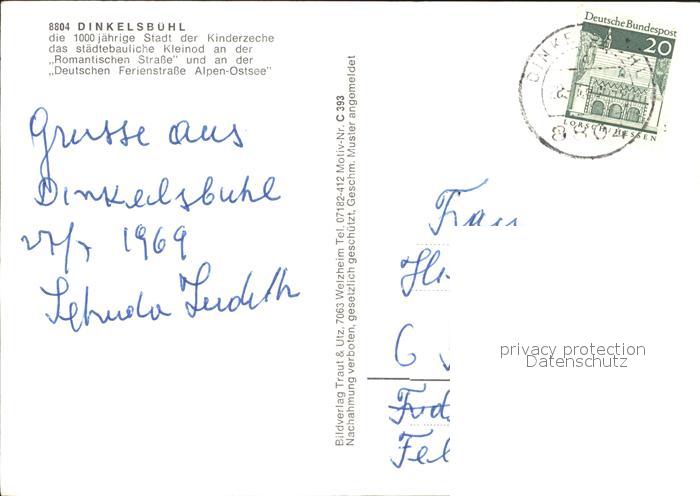 8804 DINKELSBÜHL
die 1000jährige Stadt der Kinderzeche
das städtebauliche Kleinod an der
„Romantischen Straße" und an der
„Deutschen Ferienstraße Alpen-Ostsee"
Grusse aus
Dinkelsbuhl
1969
Bildverlag Traut & Utz, 7063 Welzheim Tel. 07182-412 Motiv-Nr. C 393
Nachahmung verboten, gesetzlich geschützt, Geschm. Muster angemeldet
Deutsche Bundespost
20
LORSCH/HESSEN
Frau
6
privacy protection
Datenschutz